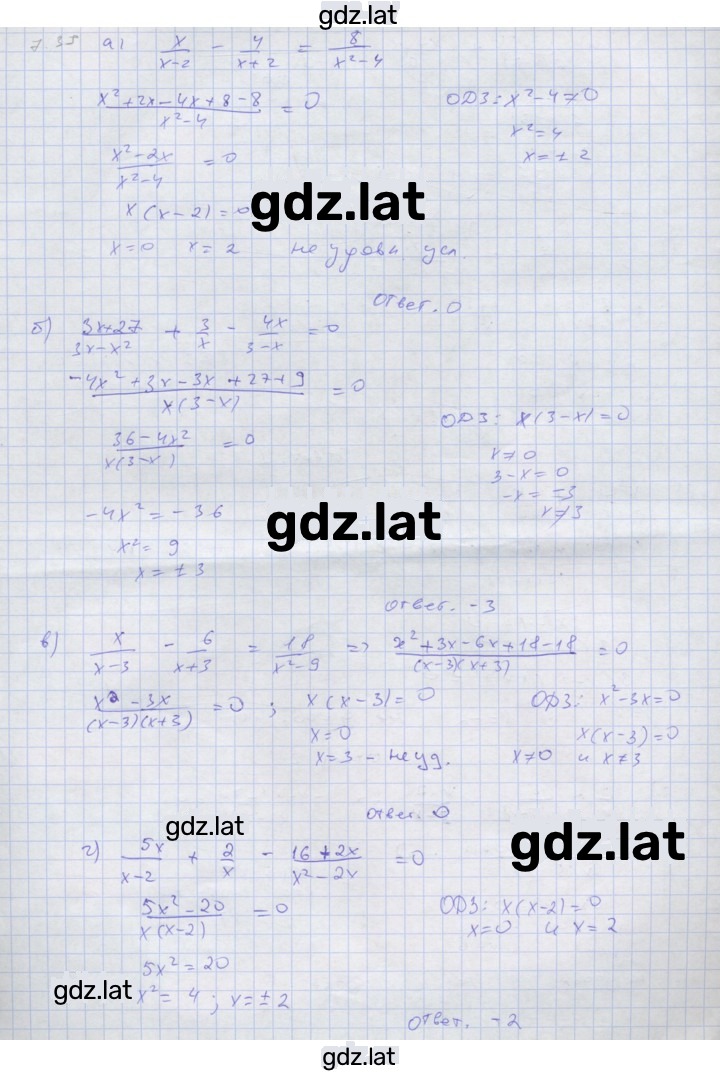 gdz.lat
7.35 а) x/(x-2) - 4/(x+2) = 8/(x²-4)
(x²+2x-4x+8-8)/(x²-4) = 0 ОДЗ: x²-4≠0
x²=4
(x²-2x)/(x²-4) = 0 x=±2
gdz.lat
x(x-2)=0
x=0 x=2 не удовл усл.
Ответ. 0
б) (3x+27)/(3x-x²) + 3/x - 4x/(3-x) = 0
(-4x²+3x-3x+27+9)/(x(3-x)) = 0
ОДЗ: x(3-x)=0
(36-4x²)/(x(3-x)) = 0 x≠0
3-x=0
-x=-3
-4x²=-36 x≠3
gdz.lat
x²=9
x=±3
Ответ. -3
в) x/(x-3) - 6/(x+3) = 18/(x²-9) => (x²+3x-6x+18-18)/((x-3)(x+3)) = 0
(x²-3x)/((x-3)(x+3)) = 0 ; x(x-3)=0 ОДЗ: x²-3x=0
x=0 x(x-3)=0
x=3 - не уд. x≠0 и x≠3
Ответ. 0
gdz.lat
gdz.lat
г) 5x/(x-2) + 2/x - (16+2x)/(x²-2x) = 0
(5x²-20)/(x(x-2)) = 0 ОДЗ: x(x-2)=0
x=0 и x=2
5x²=20
gdz.lat
x²=4; x=±2
Ответ. -2
gdz.lat